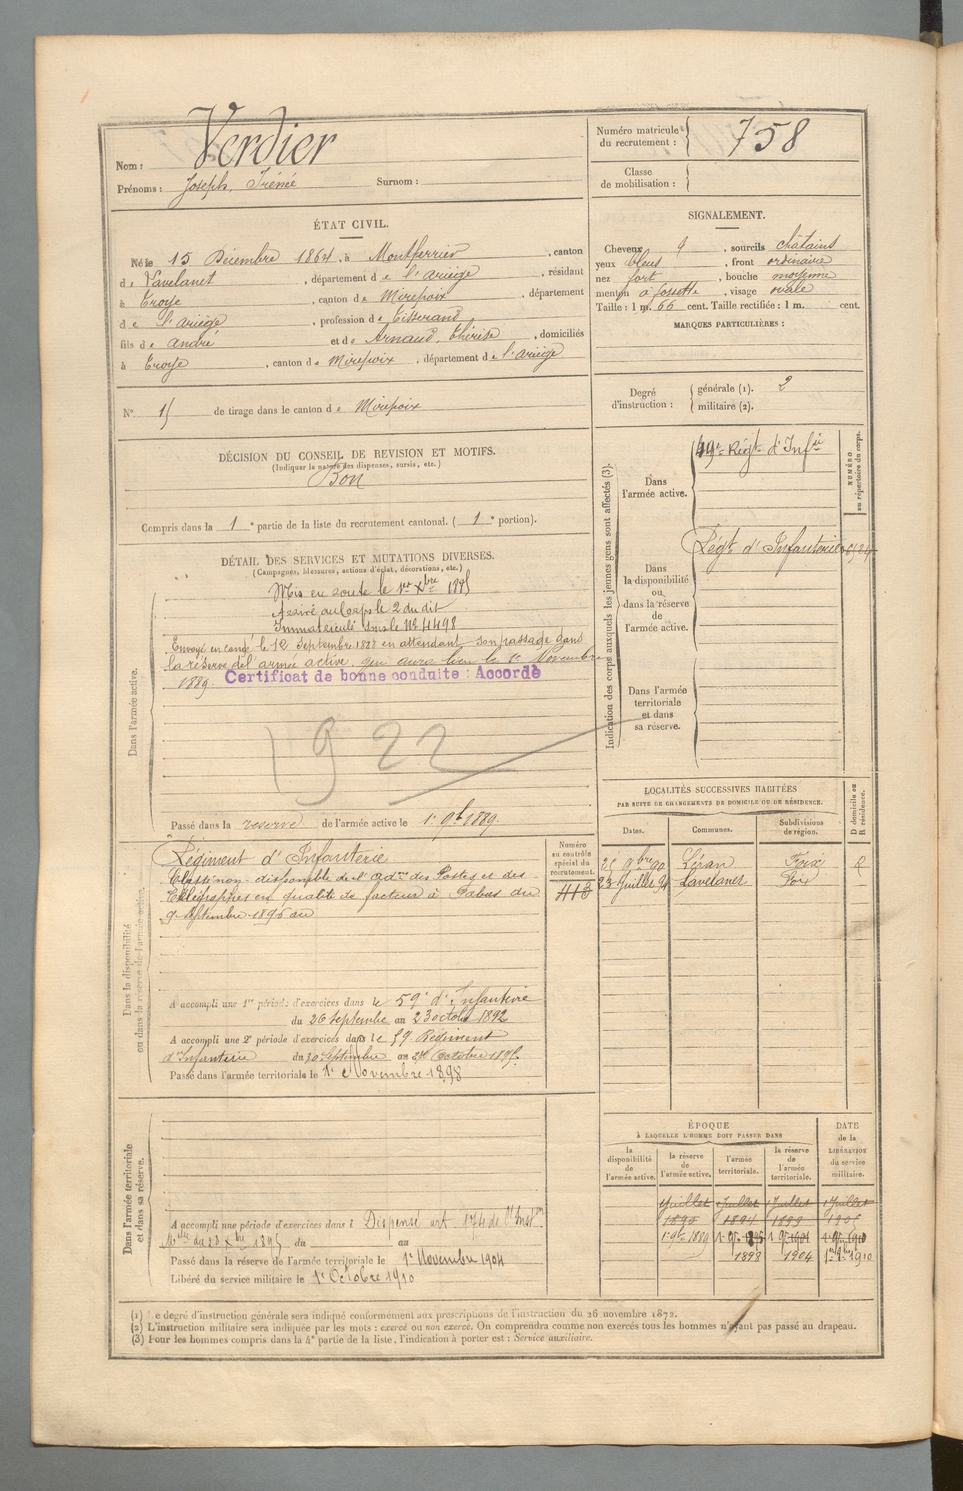 Nom : Verdier
Prénoms : Joseph, Irénée Surnom :
Numéro matricule du recrutement : 758
Classe de mobilisation :
ÉTAT CIVIL.
Né le 15 Décembre 1864, à Montferrier, canton
de Lavelanet, département de l'ariège, résidant
à Troye, canton de Mirepoix, département
de l'ariège, profession de Tisserand
fils de André et de Arnaud, Thérèse, domiciliés
à Troye, canton de Mirepoix, département de l'ariège
N° de tirage dans le canton de Mirepoix
SIGNALEMENT.
Cheveux, sourcils châtains
yeux bleus, front ordinaire
nez fort, bouche moyenne
menton à fossette, visage ovale
Taille : 1 m. 66 cent. Taille rectifiée : 1 m. cent.
MARQUES PARTICULIÈRES :
Degré d'instruction : générale (1). 2
militaire (2).
DÉCISION DU CONSEIL DE REVISION ET MOTIFS.
(Indiquer la nature des dispenses, sursis, etc.)
Bon
Compris dans la 1e partie de la liste du recrutement cantonal. (1e portion).
DÉTAIL DES SERVICES ET MUTATIONS DIVERSES.
(Campagnes, blessures, actions d'éclat, décorations, etc.)
Dans l'armée active.
Mis en route le 1er Xbre 1885
Arrivé au Corps le 2 du dit
Immatriculé sous le No 4498
Envoyé en congé le 12 Septembre 1888 en attendant son passage dans
la réserve de l'armée active, qui aura lieu le 1er Novembre
1889. Certificat de bonne conduite : Accordé
1922
Passé dans la réserve de l'armée active le 1er 9bre 1889.
Indication des corps auxquels les jeunes gens sont affectés (3).
Dans l'armée active.
Régt d'Infie
NUMÉRO au répertoire du corps.
Dans la disponibilité ou dans la réserve de l'armée active.
Régt d'Infanterie
Dans l'armée territoriale et dans sa réserve.
LOCALITÉS SUCCESSIVES HABITÉES
PAR SUITE DE CHANGEMENTS DE DOMICILE OU DE RÉSIDENCE.
Dates. Communes. Subdivisions de région. D domicile ou R résidence.
25 9bre 90 Léran Foix R
23 Juillet 94 Lavelanet Foix
Dans la disponibilité ou dans la réserve de l'armée active.
Régiment d'Infanterie
Numéro au contrôle spécial du recrutement.
413
Classé non-disponible de l'adon des Postes et des
Télégraphes en qualité de facteur à Sabas du
9 Septembre 1896 au
A accompli une 1re période d'exercices dans le 59e d'Infanterie
du 26 Septembre au 23 octobre 1892
A accompli une 2e période d'exercices dans le 59 Régiment
d'Infanterie du 30 Septembre au Octobre 1895.
Passé dans l'armée territoriale le 1er Novembre 1898
ÉPOQUE
À LAQUELLE L'HOMME DOIT PASSER DANS
DATE de la LIBÉRATION du service militaire.
la disponibilité de l'armée active. la réserve de l'armée active. l'armée territoriale. la réserve de l'armée territoriale.
Juillet Juillet Juillet Juillet
1898 1904
Dans l'armée territoriale et dans sa réserve.
A accompli une période d'exercices dans l Dispensé art. 174 de l'Inston
Mlle du 28 Xbre 1895 du au
Passé dans la réserve de l'armée territoriale le 1er Novembre 1904
Libéré du service militaire le 1er Octobre 1910
(1) Le degré d'instruction générale sera indiqué conformément aux prescriptions de l'instruction du 26 novembre 1872.
(2) L'instruction militaire sera indiquée par les mots : exercé ou non exercé. On comprendra comme non exercés tous les hommes n'ayant pas passé au drapeau.
(3) Pour les hommes compris dans la 4e partie de la liste, l'indication à porter est : Service auxiliaire.